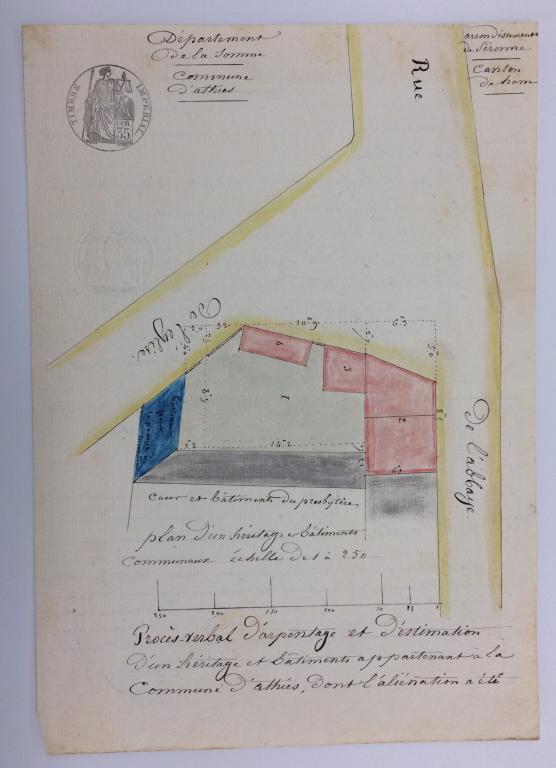 Département
de la Somme
Commune
d'athies
arrondissement
de Péronne
Canton
de ham
TIMBRE IMPÉRIAL
35
CEN.
Rue
De l'église.
De l'abbaye
10.6
6.3
5.0
8.5
14.2
8.5
1
2
3
4
Cour et bâtiments du presbytère
plan d'un héritage et bâtiments
Communaux échelle de 1 à 250
250 200 150 100 50 25 1
Procès-verbal d'arpentage et d'éstimation
d'un héritage et bâtiments appartenant à la
Commune d'athies, dont l'aliénation a été